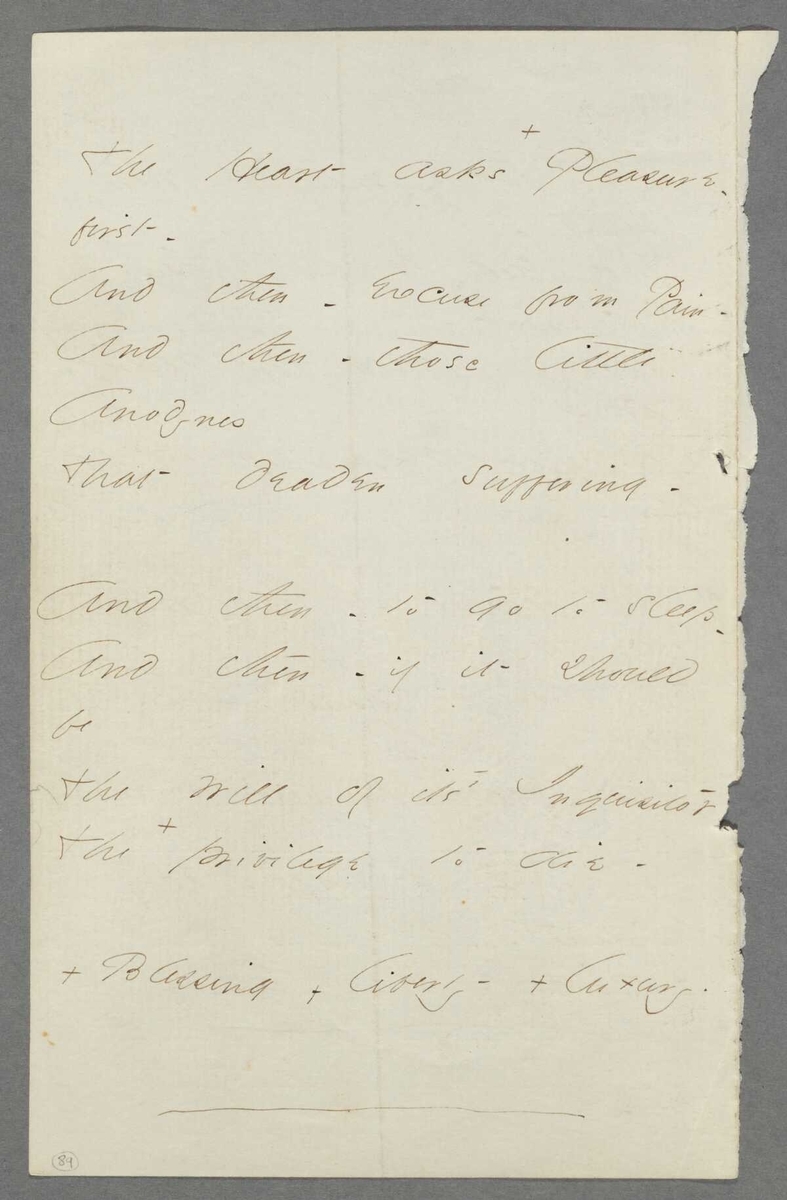 +
The Heart asks Pleasure -
first -
And then - Excuse from Pain -
And then - those little
Anodynes
That deaden suffering -
And then - to go to sleep -
And then - if it should
be
The will of it's Inquisitor
+
The privilege to die -
+ Blessing + liberty - + luxury -
89